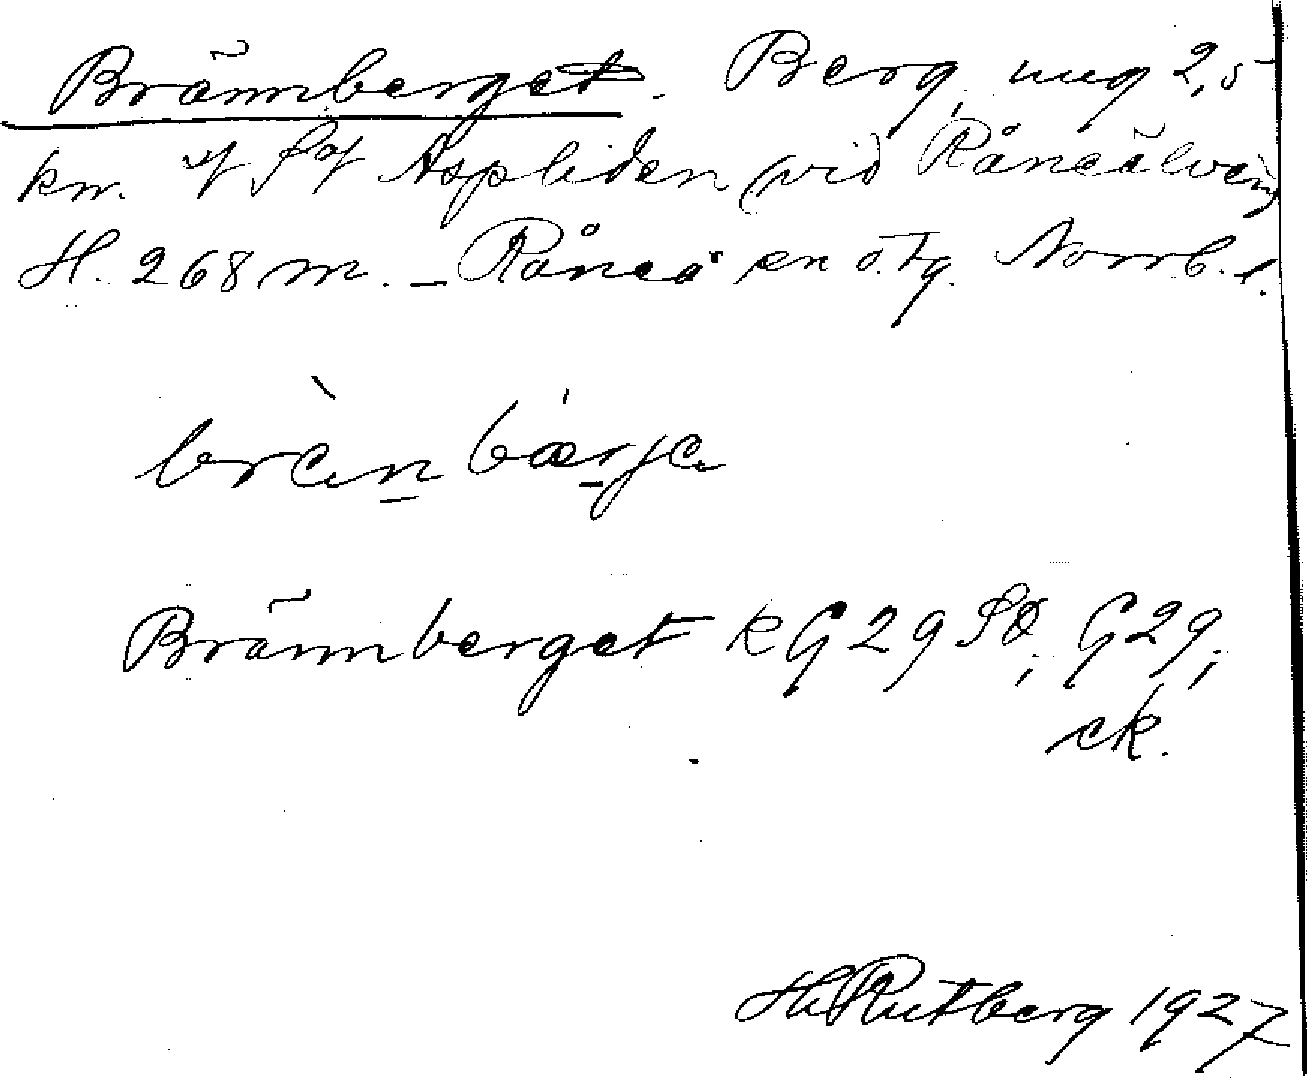 Brännberget. Berg, ung 2,5
km. Aspliden (vid Råneälven)
H. 268 m. – Råneå sn o. tg. Norrb. l.
brèn bärja
Brännberget k G 29 SO; G 29;
ck.
H. Rutberg 1927